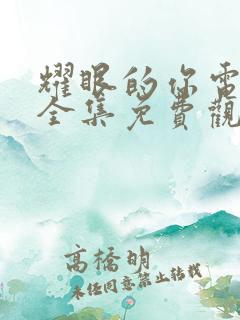 耀眼的你電
全集免費觀
高橋明
未经同意禁止转载